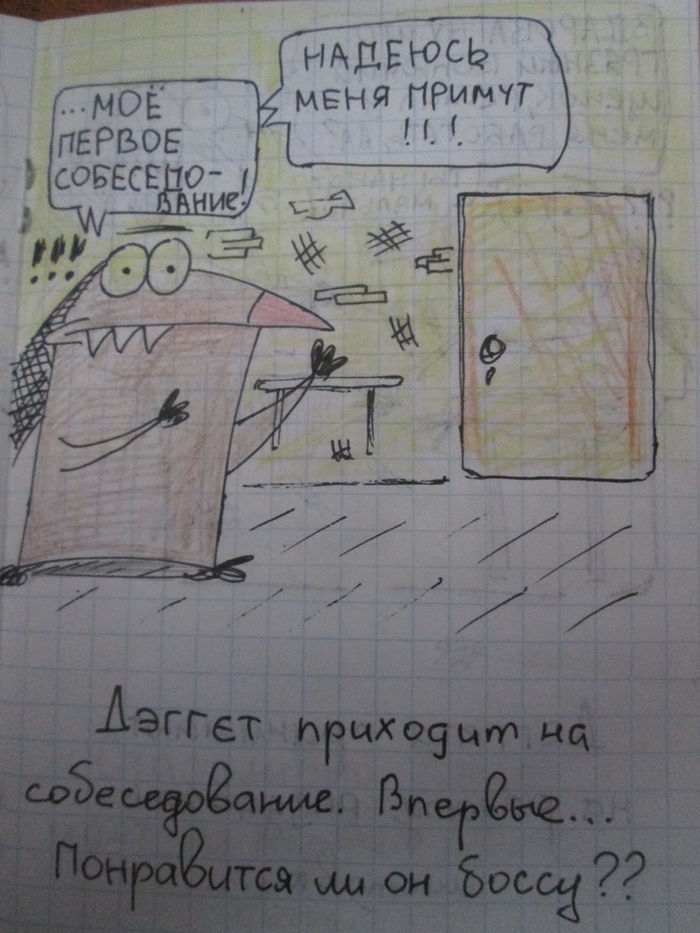 ...МОЁ
ПЕРВОЕ
СОБЕСЕДО-
ВАНИЕ!
НАДЕЮСЬ
МЕНЯ ПРИМУТ
!!!
!!!
Дэггет приходит на
собеседование. Впервые...
Понравится ли он боссу??